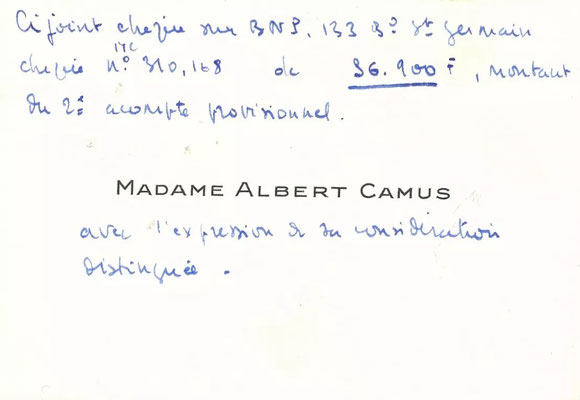 Ci joint chèque sur BNP, 133 Bd St Germain
17C
chèque n° 310,168 de 36.900 F, montant
du 2e acompte provisionnel.
MADAME ALBERT CAMUS
avec l'expression de sa considération
distinguée.